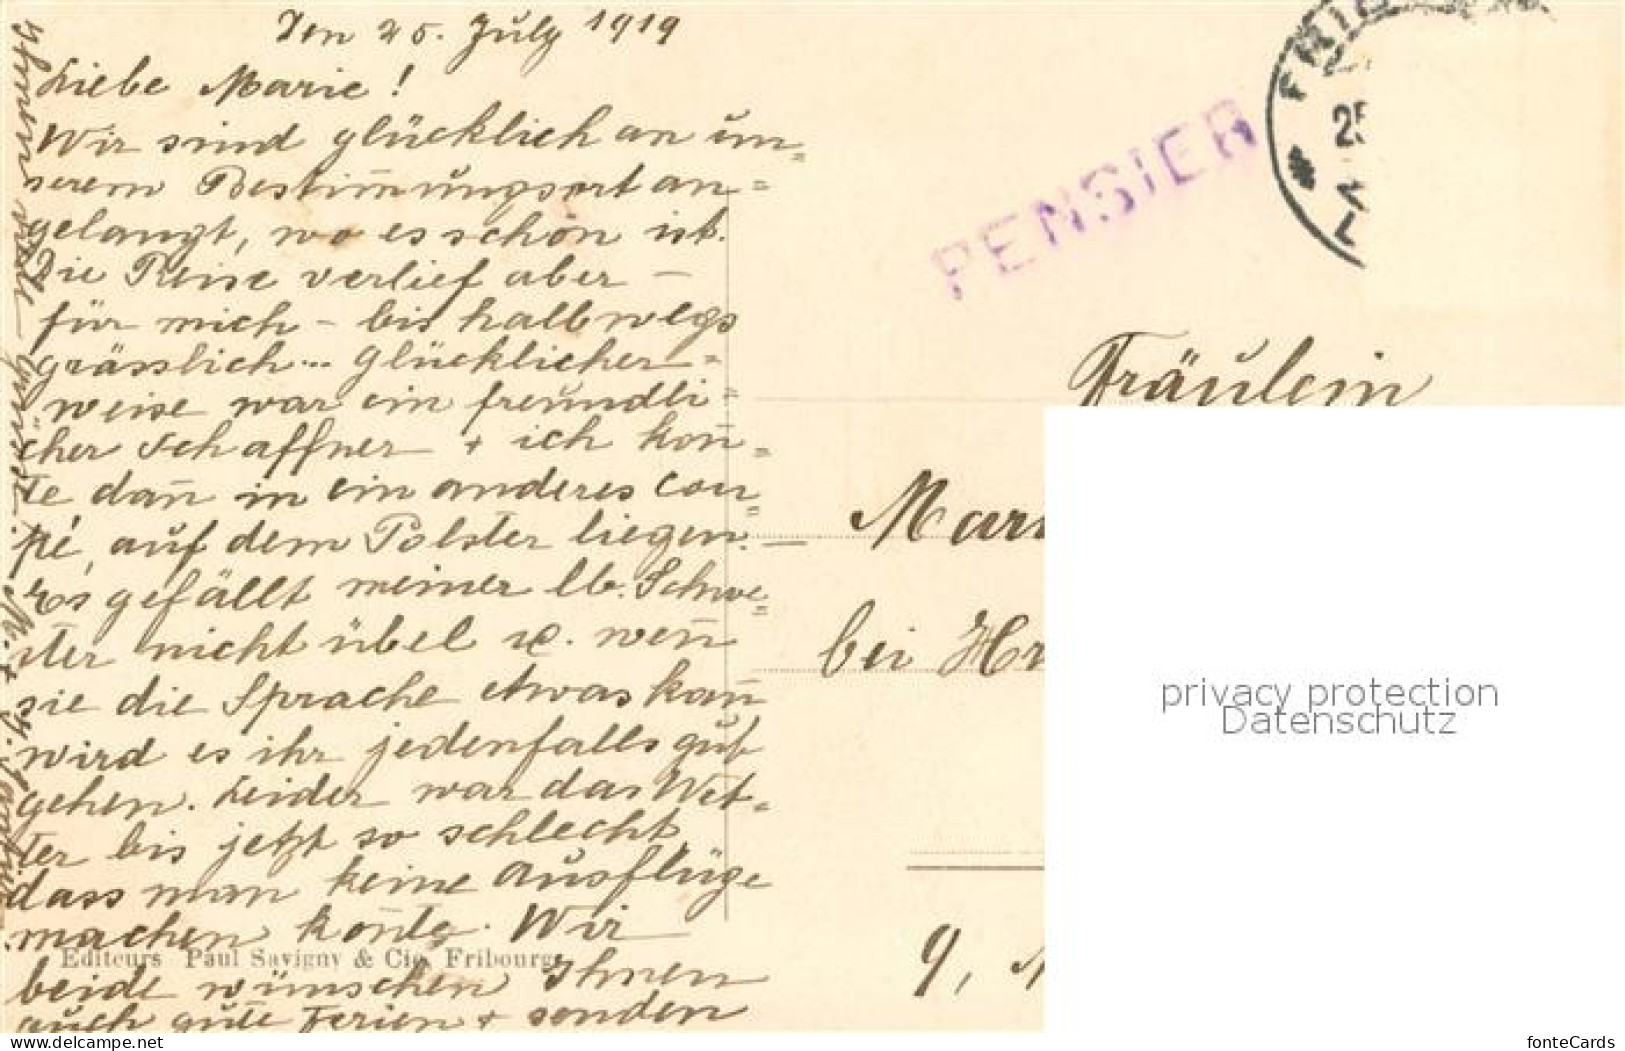 Den 25. July 1919
Liebe Marie!
Wir sind glücklich an un=
serem Bestim̄ungsort an=
gelangt, wo es schön ist.
Die Reise verlief aber –
für mich – bis halbwegs
grässlich... Glücklicher=
weise war ein freundli=
cher Schaffner + ich kon̄=
te dan̄ in ein anderes Cou=
pé, auf dem Polster liegen. –
Es gefällt meiner lb. Schwe=
ster nicht übel u. wen̄
sie die Sprache etwas kan̄
wird es ihr jedenfalls gut
gehen. Leider war das Wet=
ter bis jetzt so schlecht,
dass man keine Ausflüge
machen kon̄te. Wir
beide wünschen Ihnen
auch gute Ferien + senden
Editeurs Paul Savigny & Cie, Fribourg
PENSIER
FRIB
25
Fräulein
Mari
bei Hr
9,
privacy protection
Datenschutz
www.delcampe.net
fonteCards